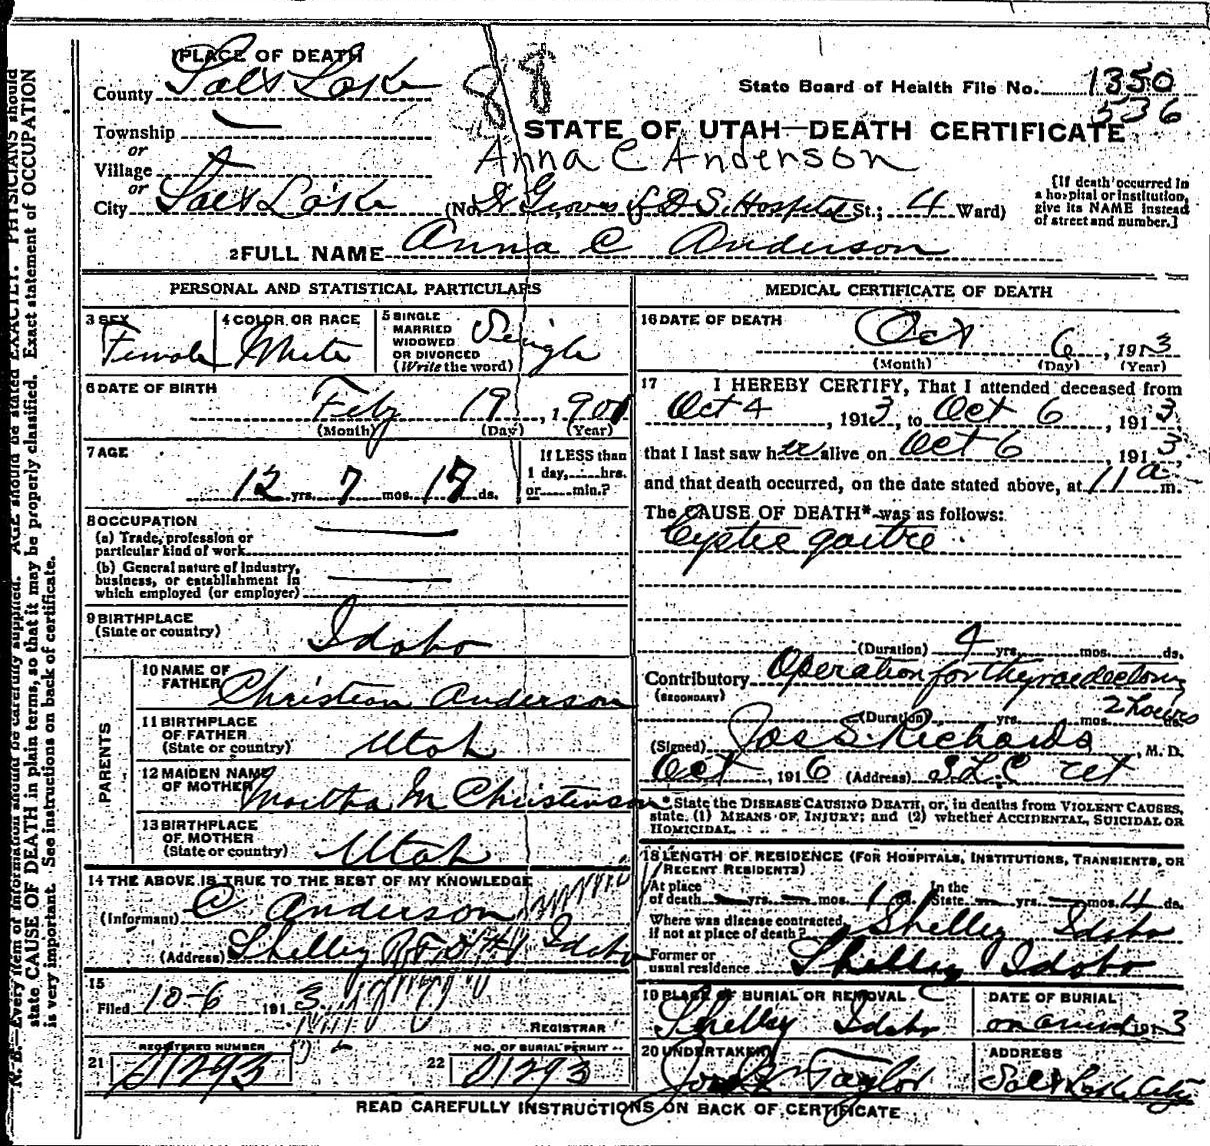 PLACE OF DEATH
County Salt Lake
88
State Board of Health File No. 1350
536
STATE OF UTAH—DEATH CERTIFICATE
Township
or
Village
or
City Salt Lake
Anna C Anderson
(No. Dr Groves L D S. Hospital St.; 4 Ward)
[If death occurred in a hospital or institution, give its NAME instead of street and number.]
2 FULL NAME Anna C Anderson
PERSONAL AND STATISTICAL PARTICULARS
3 SEX Female
4 COLOR OR RACE White
5 SINGLE MARRIED WIDOWED OR DIVORCED (Write the word) Single
6 DATE OF BIRTH
Feby 19, 1901
(Month) (Day) (Year)
7 AGE
12 yrs. 7 mos. 17 ds.
If LESS than 1 day, hrs. or min.?
8 OCCUPATION
(a) Trade, profession or particular kind of work
(b) General nature of industry, business, or establishment in which employed (or employer)
9 BIRTHPLACE (State or country) Idaho
PARENTS
10 NAME OF FATHER Christian Anderson
11 BIRTHPLACE OF FATHER (State or country) Utah
12 MAIDEN NAME OF MOTHER Martha M Christenson
13 BIRTHPLACE OF MOTHER (State or country) Utah
14 THE ABOVE IS TRUE TO THE BEST OF MY KNOWLEDGE
(Informant) C Anderson
(Address) Shelley Idaho
15 Filed 10-6 1913
REGISTRAR
REGISTERED NUMBER
21 D1293
NO. OF BURIAL PERMIT
22 D1293
MEDICAL CERTIFICATE OF DEATH
16 DATE OF DEATH
Oct 6, 1913
(Month) (Day) (Year)
17 I HEREBY CERTIFY, That I attended deceased from
Oct 4, 1913, to Oct 6, 1913
that I last saw her alive on Oct 6, 1913
and that death occurred, on the date stated above, at 11 a m.
The CAUSE OF DEATH* was as follows:
Cystic goitre
(Duration) 4 yrs. mos. ds.
Contributory Operation for thyroidectomy
(SECONDARY)
2 hours
(Duration) yrs. mos. ds.
(Signed) Jos S. Richards, M. D.
Oct, 1916 (Address) S. L. C Ut
* State the DISEASE CAUSING DEATH, or, in deaths from VIOLENT CAUSES, state (1) MEANS OF INJURY; and (2) whether ACCIDENTAL, SUICIDAL OR HOMICIDAL.
18 LENGTH OF RESIDENCE (FOR HOSPITALS, INSTITUTIONS, TRANSIENTS, OR RECENT RESIDENTS)
At place of death yrs. mos. ds. In the State yrs. mos. 4 ds.
Where was disease contracted, if not at place of death? Shelley Idaho
Former or usual residence Shelley Idaho
19 PLACE OF BURIAL OR REMOVAL
Shelley Idaho
DATE OF BURIAL
on arrival 1913
20 UNDERTAKER
Taylor
ADDRESS
Salt Lake City
READ CAREFULLY INSTRUCTIONS ON BACK OF CERTIFICATE
N. B.—Every item of information should be carefully supplied. AGE should be stated EXACTLY. PHYSICIANS should
state CAUSE OF DEATH in plain terms, so that it may be properly classified. Exact statement of OCCUPATION
is very important. See instructions on back of certificate.